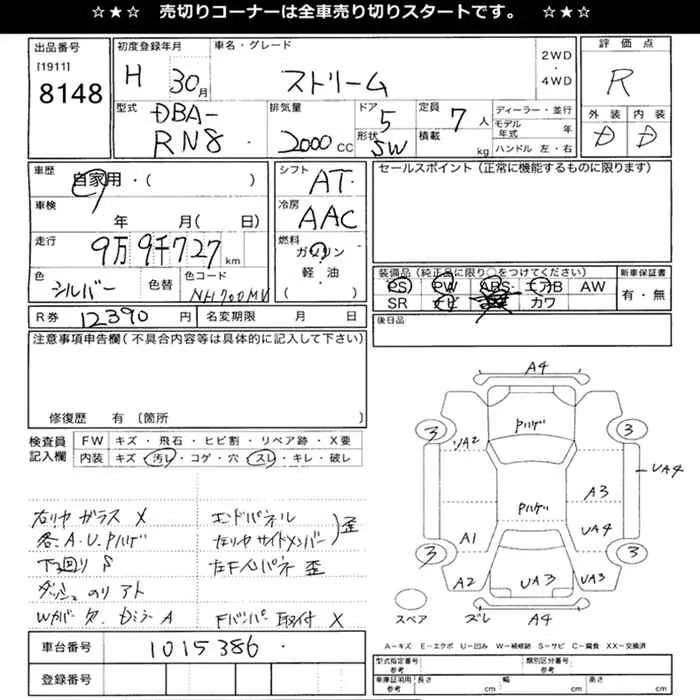 ☆★☆ 売切りコーナーは全車売り切りスタートです。 ☆★☆
出品番号
[1911]
8148
初度登録年月
H 30月
車名・グレード
ストリーム
2WD
・
4WD
評価点
R
外装 内装
D D
型式
DBA-
RN8
排気量
2000 CC
ドア
5
形状
SW
定員
7人
積載 kg
ディーラー・並行
モデル年式 年
ハンドル 左・右
車歴
自家用・( )
車検
年 月( 日)
走行
9万9千727 km
色
シルバー
色替
色コード
NH700MV
シフト
AT
冷房
AAC
燃料
ガソリン
軽・油
( )
セールスポイント(正常に機能するものに限ります)
装備品(純正品に限り○をつけてください)
PS PW ABS エアB AW
SR ナビ カワ
新車保証書
有・無
後日品
R券 12390 円
名変期限 月 日
注意事項申告欄(不具合内容等は具体的に記入して下さい)
修復歴 有 [箇所 ]
検査員
記入欄
FW キズ・飛石・ヒビ割・リペア跡・X要
内装 キズ・汚レ・コゲ・穴・スレ・キレ・破レ
右リヤ ガラス X
各.A.U.Pハゲ
下回り S
ダッシュ のり アト
Wカバー タ. Dミラー A
エンドパネル
左リヤ サイドメンバー
歪
左Fインパネ 歪
Fバンパー 取付 X
A4
Pハゲ
3
3
A2
UA4
Pハゲ
A3
A1
UA4
3
3
A2
UA3
UA3
スペア
ズレ
A4
A-キズ E-エクボ U-凹み W-補修跡 S-サビ C-腐食 XX-交換済
車台番号
1015386
登録番号
型式指定番号
参考
類別区分番号
参考
車庫証明用
参考
長さ cm
幅 cm
高さ cm